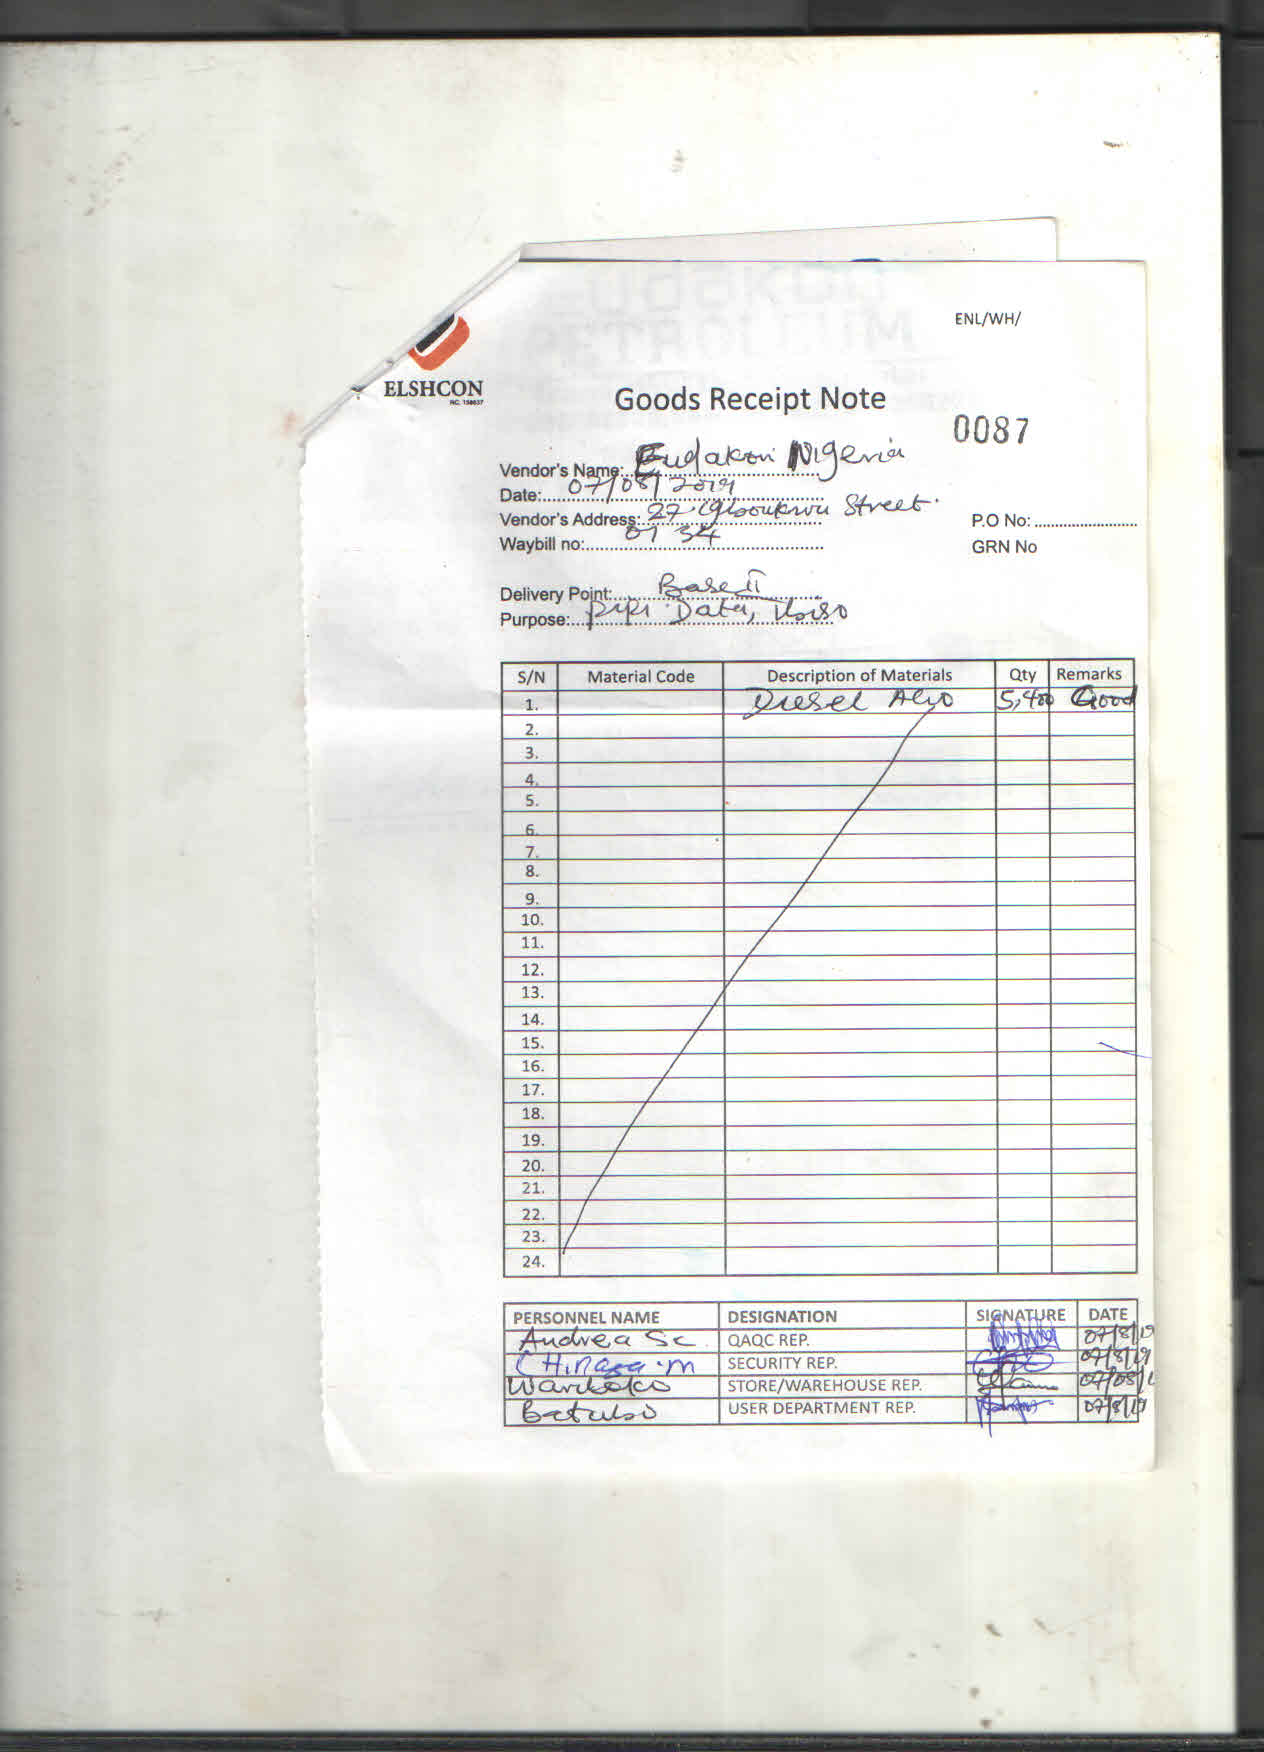 ENL/WH/
ELSHCON
RC. 158637
Goods Receipt Note
0087
Vendor's Name: Eudakon Nigeria
Date: 07/08/2019
Vendor's Address: 27 Street
P.O No:
Waybill no: 0134
GRN No
Delivery Point: Base II
Purpose: Data,
S/N Material Code Description of Materials Qty Remarks
1. Diesel AGO 5,400 Good
2.
3.
4.
5.
6.
7.
8.
9.
10.
11.
12.
13.
14.
15.
16.
17.
18.
19.
20.
21.
22.
23.
24.
PERSONNEL NAME DESIGNATION SIGNATURE DATE
Andrea Sc QAQC REP. 07/8/19
CHinaza .m SECURITY REP. 07/8/19
STORE/WAREHOUSE REP. 07/08/1
USER DEPARTMENT REP. 07/8/19
EUDAKON
PETROLEUM